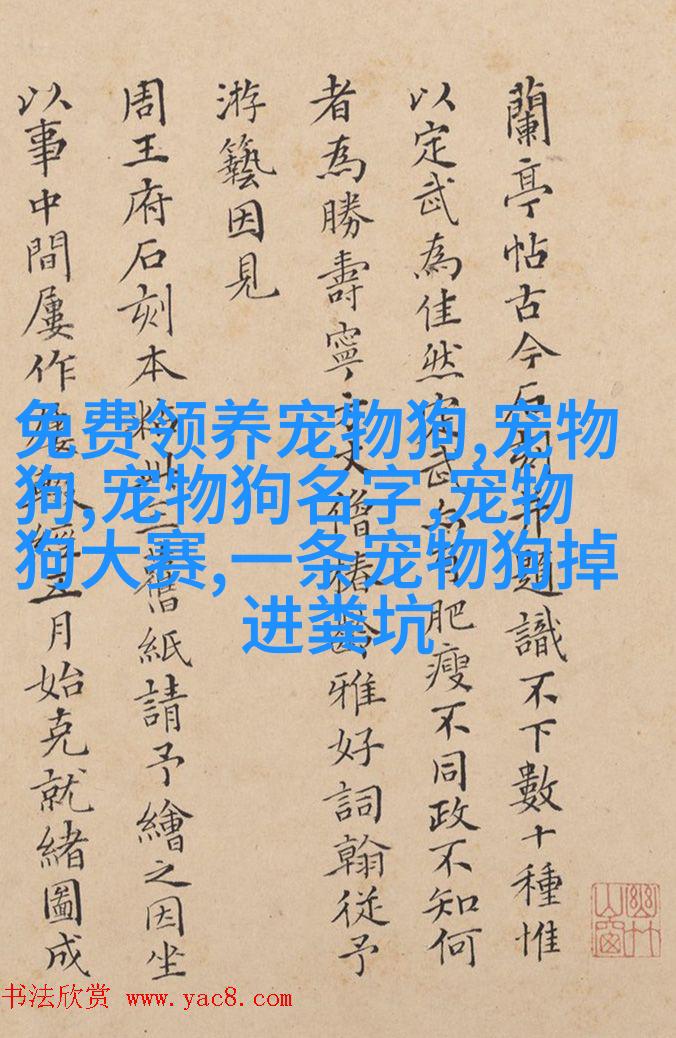 蘭亭帖古今石刻 題識不下數十種惟
以定武為佳然定武 肥瘦不同政不知何
者為勝壽寧 丈僧椿齡雅好詞翰從予
游藝因見
周王府石刻本 舊紙請予繪之因坐
以事中間屢作屢 經五月始克就緒圖成
幽竹山窗
免费领养宠物狗,宠物
狗,宠物狗名字,宠物
狗大赛,一条宠物狗掉
进粪坑
书法欣赏 www.yac8.com